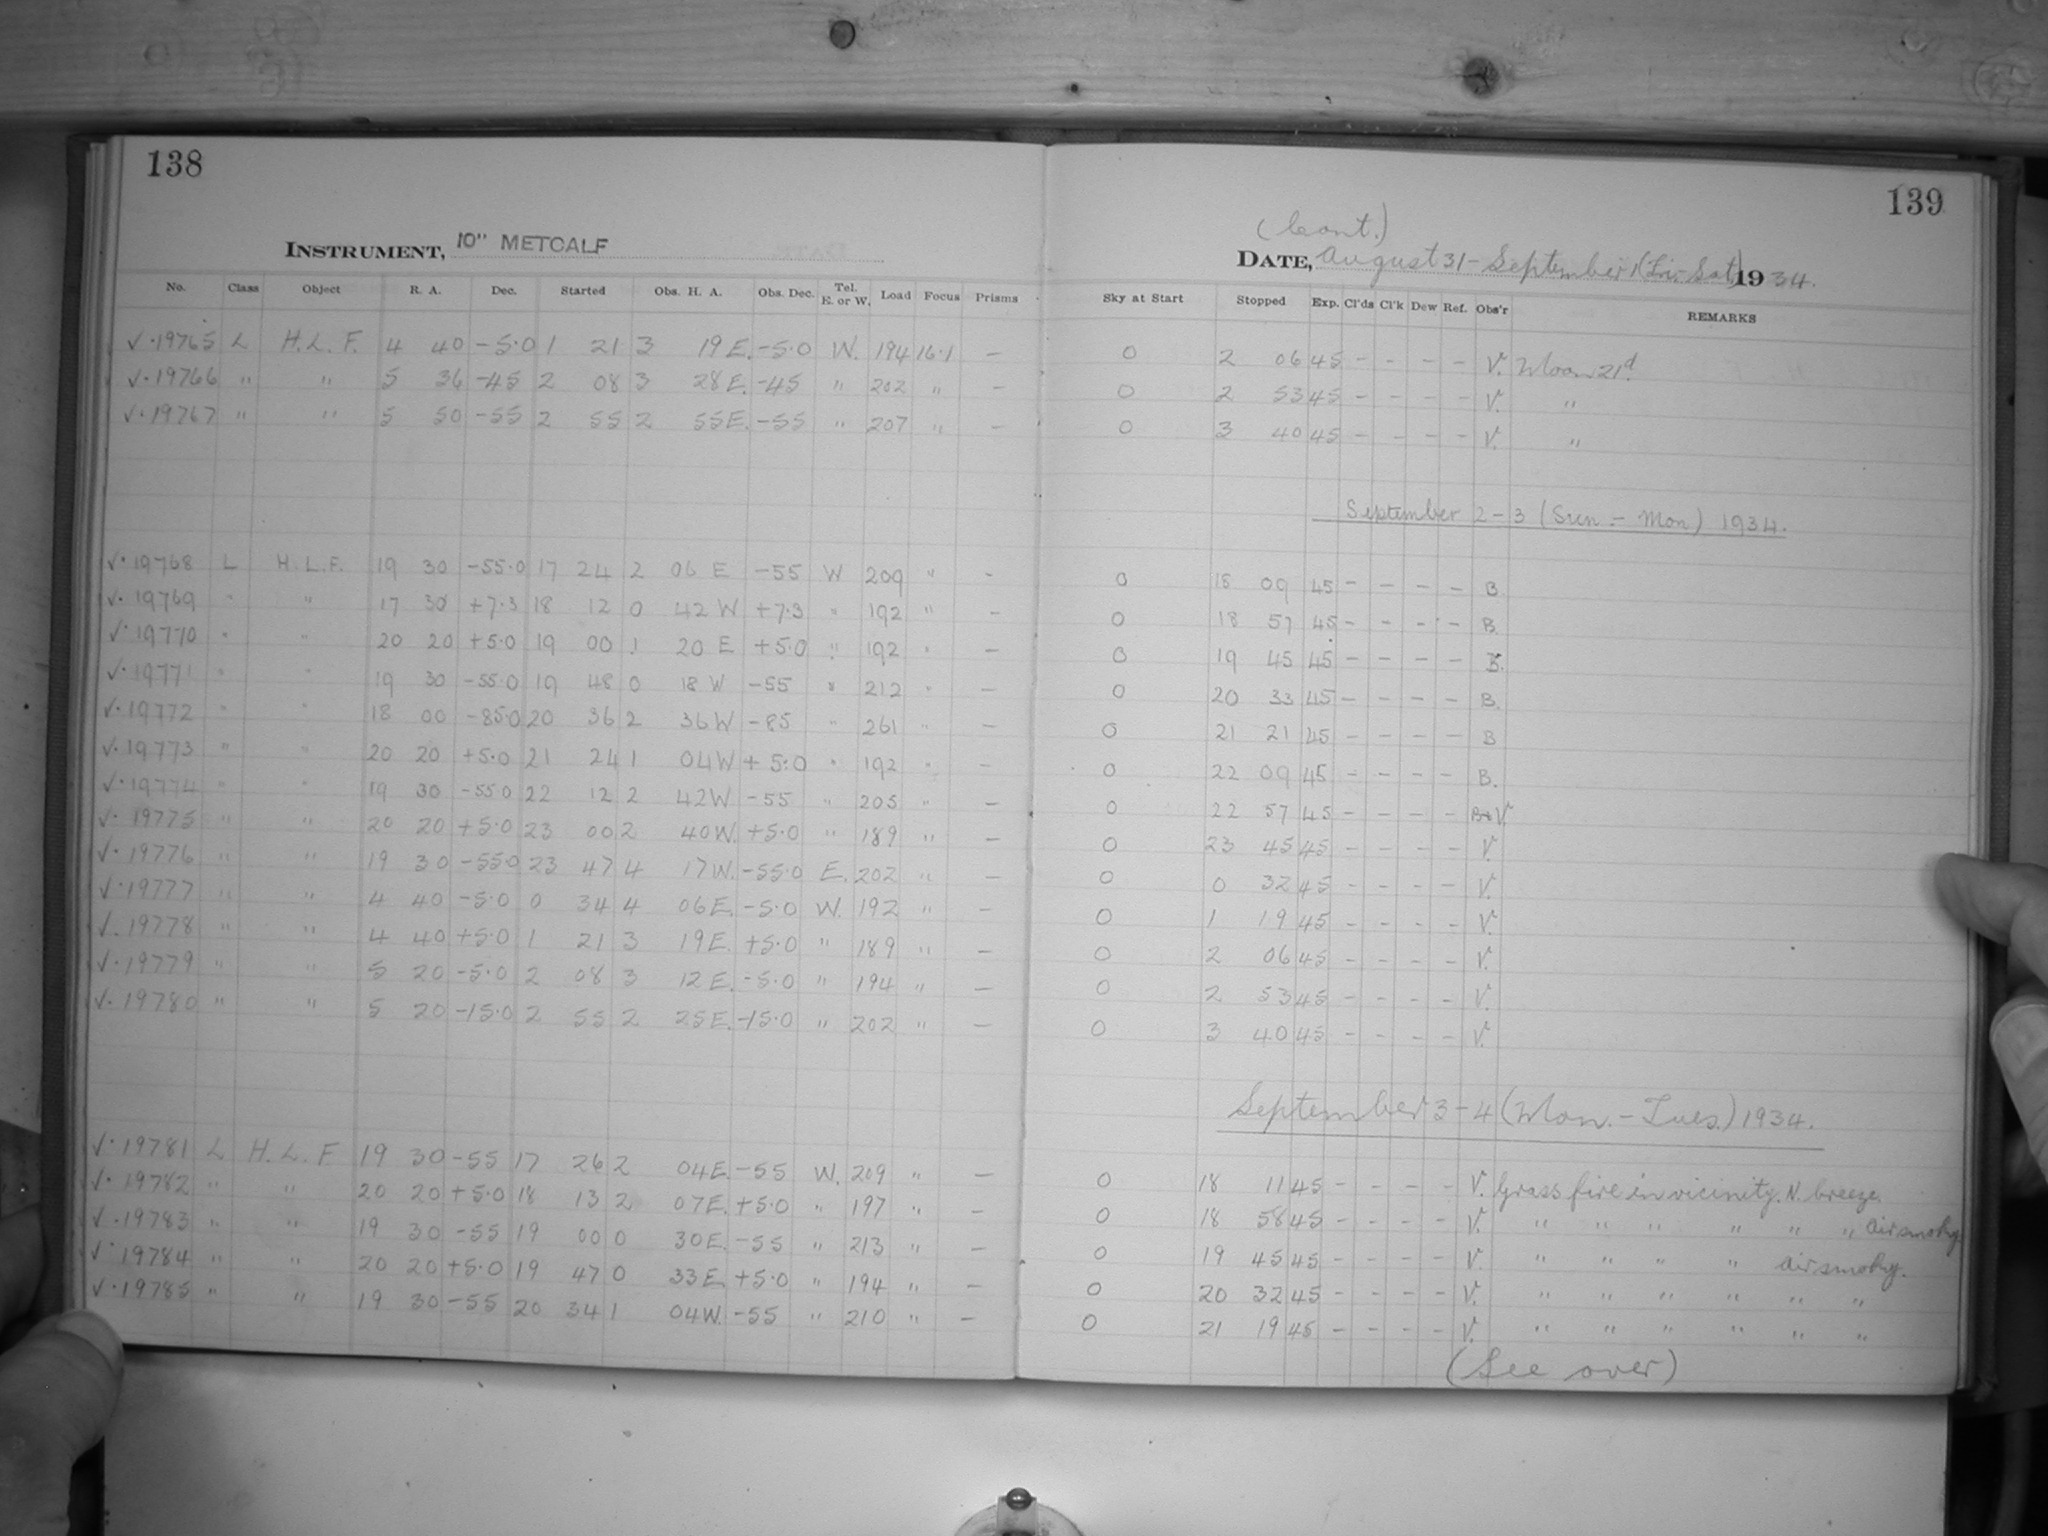 138
139
INSTRUMENT, 10" METCALF
(Cont.)
DATE, August 31 - September 1 (Fri.-Sat.) 1934.
No. Class Object R. A. Dec. Started Obs. H. A. Obs. Dec. Tel. E. or W. Load Focus Prisms Sky at Start Stopped Exp. Cl'ds Cl'k Dew Ref. Obs'r REMARKS
√·19765 L H.L.F. 4 40 -5·0 1 21 3 19 E. -5·0 W. 194 16·1 — 0 2 06 45 - - - - V. Moon 21d.
√·19766 " " 5 36 -45 2 08 3 28 E. -45 " 202 " — 0 2 53 45 - - - - V. "
√·19767 " " 5 50 -55 2 55 2 55 E. -55 " 207 " — 0 3 40 45 - - - - V. "
September 2-3 (Sun.-Mon) 1934.
√·19768 L H.L.F. 19 30 -55·0 17 24 2 06 E -55 W 209 " - 0 18 09 45 - - - - B
√·19769 " " 17 30 +7·3 18 12 0 42 W +7·3 " 192 " — 0 18 57 45 - - - - B.
√·19770 " " 20 20 +5·0 19 00 1 20 E +5·0 " 192 " — 0 19 45 45 - - - - B.
√·19771 " " 19 30 -55·0 19 48 0 18 W -55 " 212 " — 0 20 33 45 - - - - B.
√·19772 " " 18 00 -85·0 20 36 2 36 W -85 " 261 " — 0 21 21 45 - - - - B
√·19773 " " 20 20 +5·0 21 24 1 04 W +5·0 " 192 " — 0 22 09 45 - - - - B.
√·19774 " " 19 30 -55·0 22 12 2 42 W -55 " 205 " — 0 22 57 45 - - - - V.
√·19775 " " 20 20 +5·0 23 00 2 40 W. +5·0 " 189 " — 0 23 45 45 - - - - V.
√·19776 " " 19 30 -55·0 23 47 4 17 W. -55·0 E. 202 " — 0 0 32 45 - - - - V.
√·19777 " " 4 40 -5·0 0 34 4 06 E. -5·0 W. 192 " — 0 1 19 45 - - - - V.
√·19778 " " 4 40 +5·0 1 21 3 19 E. +5·0 " 189 " — 0 2 06 45 - - - - V.
√·19779 " " 5 20 -5·0 2 08 3 12 E. -5·0 " 194 " — 0 2 53 45 - - - - V.
√·19780 " " 5 20 -15·0 2 55 2 25 E. -15·0 " 202 " — 0 3 40 45 - - - - V.
September 3-4 (Mon.-Tues.) 1934.
√·19781 L H.L.F. 19 30 -55 17 26 2 04 E. -55 W. 209 " — 0 18 11 45 - - - - V. Grass fire in vicinity. N. breeze.
√·19782 " " 20 20 +5·0 18 13 2 07 E. +5·0 " 197 " — 0 18 58 45 - - - - V. " " " " " " air smoky
√·19783 " " 19 30 -55 19 00 0 30 E. -55 " 213 " — 0 19 45 45 - - - - V. " " " " air smoky.
√·19784 " " 20 20 +5·0 19 47 0 33 E. +5·0 " 194 " — 0 20 32 45 - - - - V. " " " " " "
√·19785 " " 19 30 -55 20 34 1 04 W. -55 " 210 " — 0 21 19 45 - - - - V. " " " " " "
(See over)